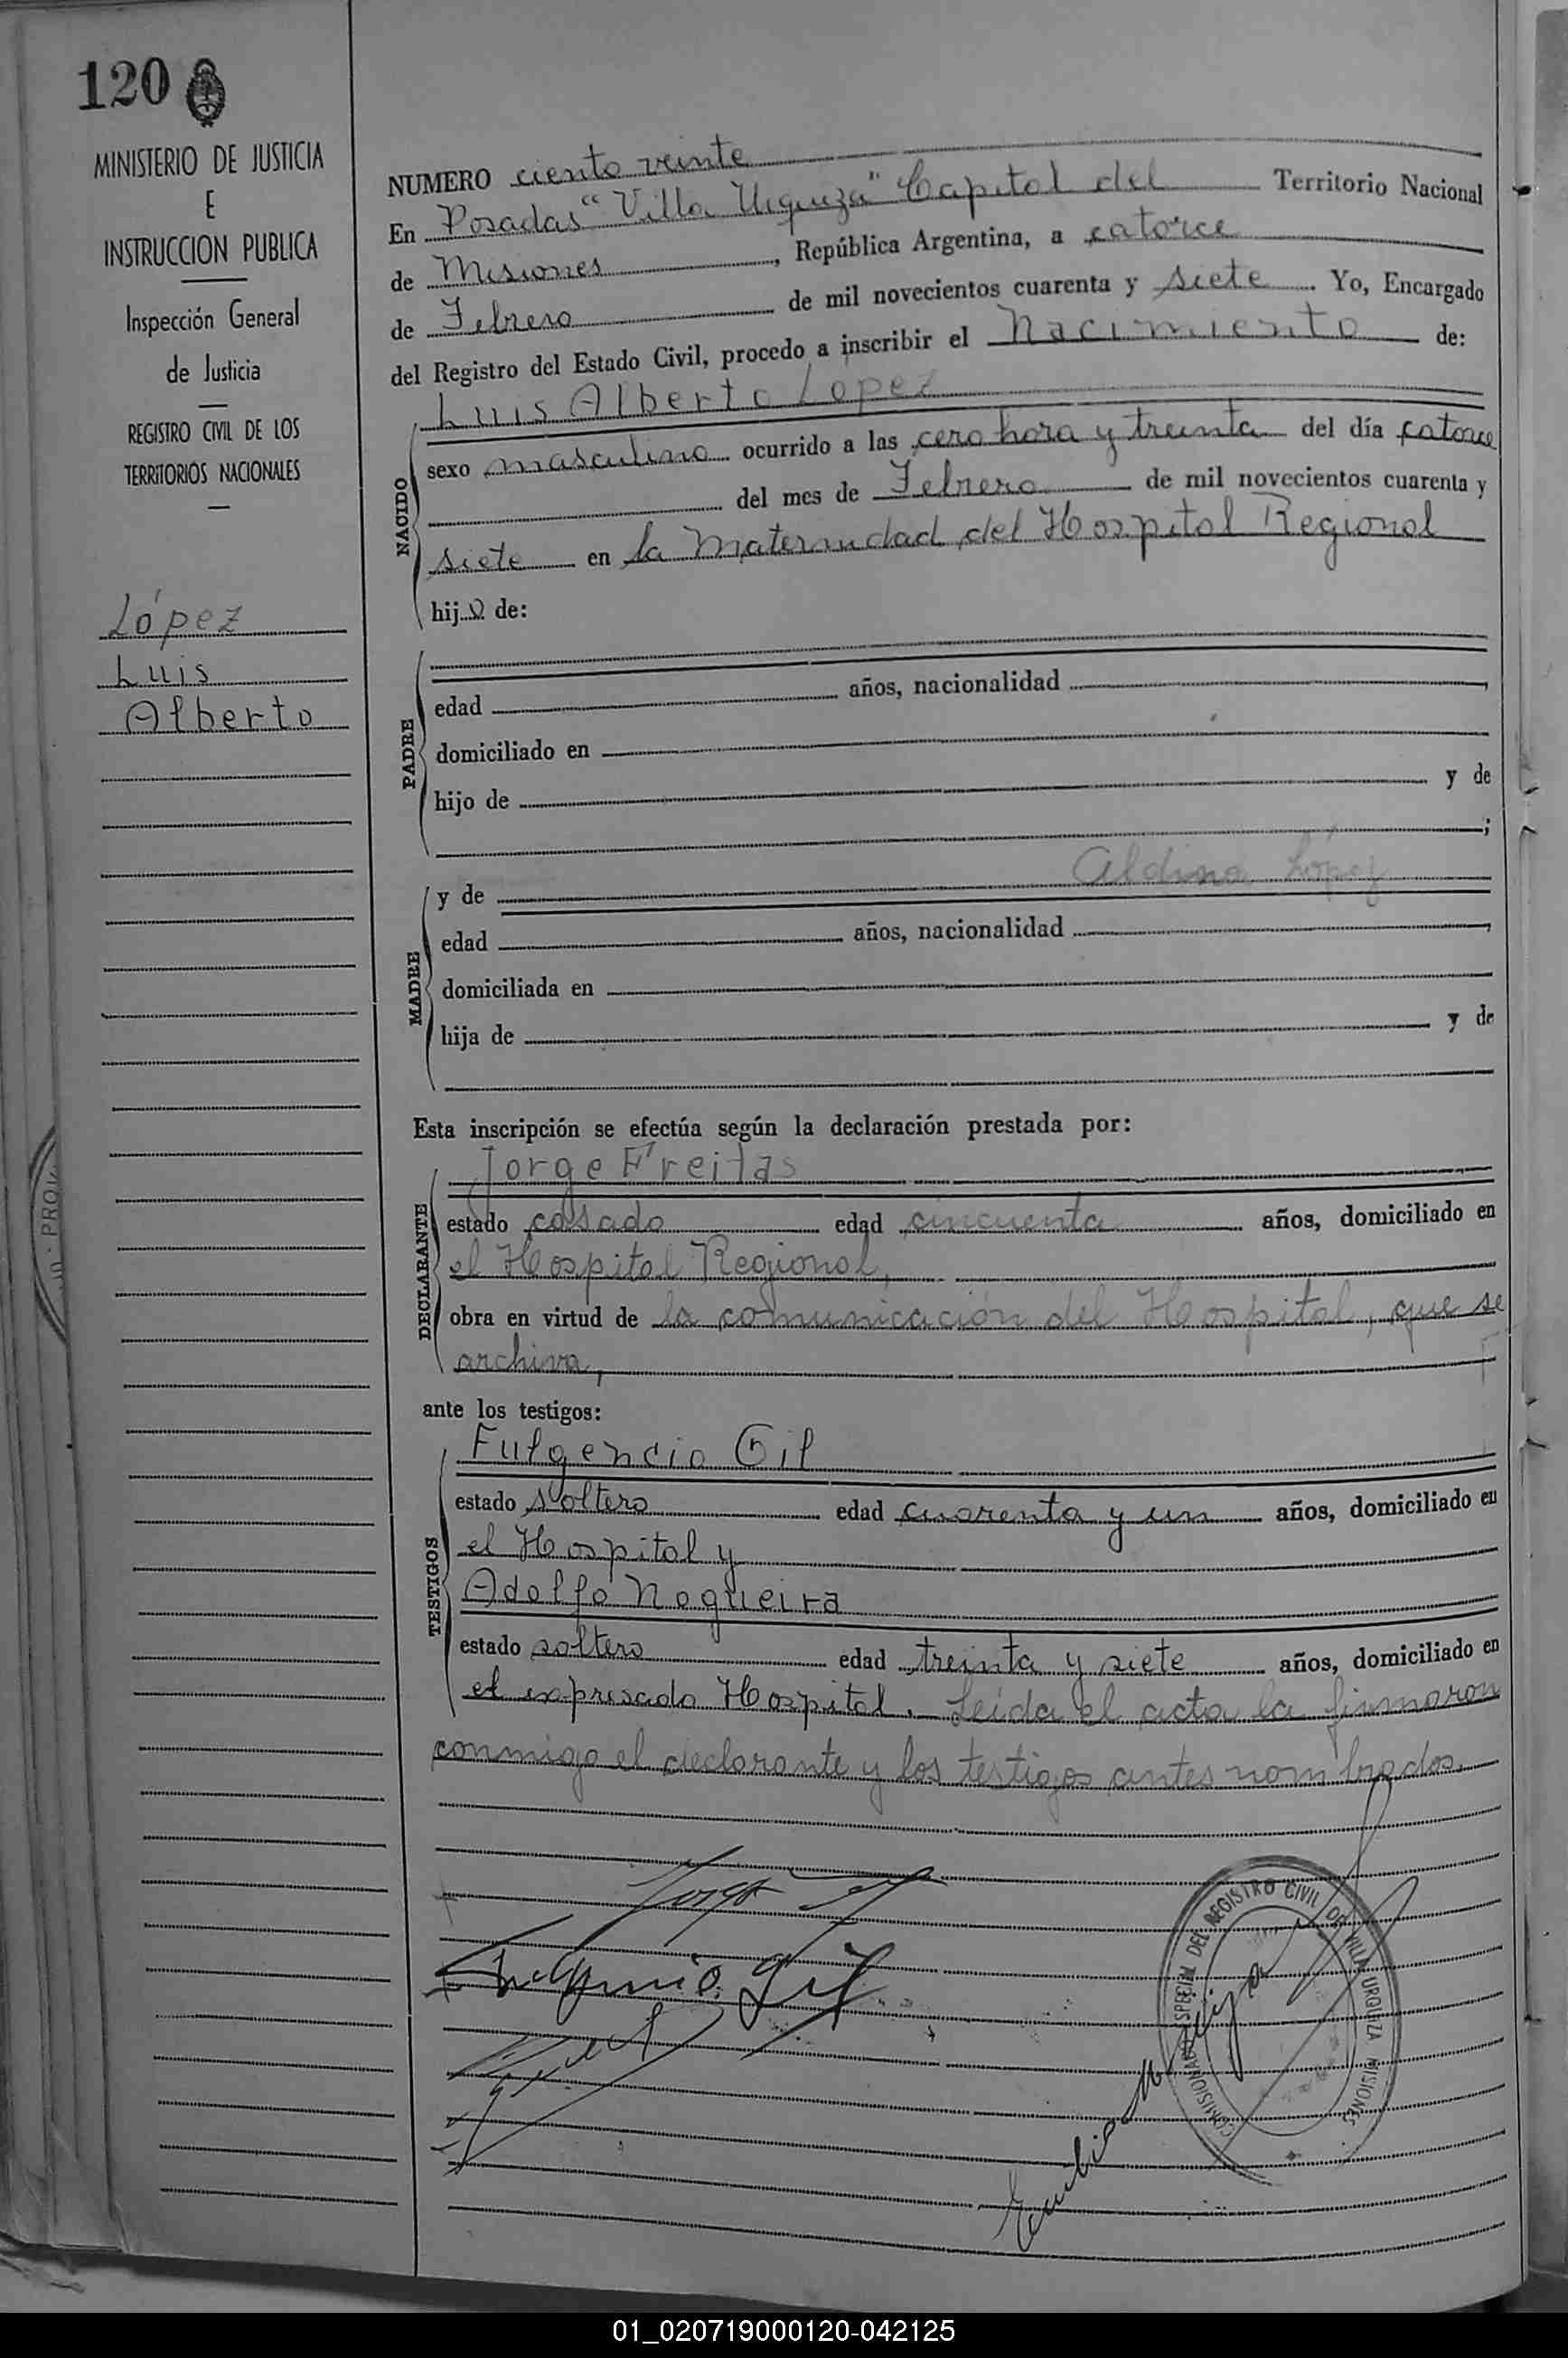 120
MINISTERIO DE JUSTICIA
E
INSTRUCCION PUBLICA
Inspección General
de Justicia
REGISTRO CIVIL DE LOS
TERRITORIOS NACIONALES
López
Luis
Alberto
NUMERO ciento veinte
En Posadas "Villa Urquiza" Capital del Territorio Nacional
de Misiones, República Argentina, a catorce
de Febrero de mil novecientos cuarenta y siete. Yo, Encargado
del Registro del Estado Civil, procedo a inscribir el Nacimiento de:
Luis Alberto López
NACIDO
sexo masculino ocurrido a las cero hora y treinta del día catorce
del mes de Febrero de mil novecientos cuarenta y
siete en la Maternidad del Hospital Regional
hijo de:
PADRE
edad años, nacionalidad
domiciliado en
hijo de y de
;
MADRE
y de Aldina López
edad años, nacionalidad
domiciliada en
hija de y de
Esta inscripción se efectúa según la declaración prestada por:
DECLARANTE
Jorge Freitas
estado casado edad cincuenta años, domiciliado en
el Hospital Regional,
obra en virtud de la comunicación del Hospital, que se
archiva,
ante los testigos:
TESTIGOS
Fulgencio Gil
estado soltero edad cuarenta y un años, domiciliado en
el Hospital y
Adolfo Nogueira
estado soltero edad treinta y siete años, domiciliado en
el expresado Hospital. - Leída el acta la firmaron
conmigo el declarante y los testigos antes nombrados.
Jorge F
Fulgencio Gil
COMISIONADO ESPECIAL DEL REGISTRO CIVIL DE VILLA URQUIZA MISIONES
01_020719000120-042125